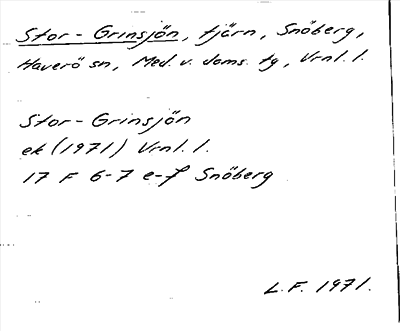 Stor-Grinsjön, tjärn, Snöberg,
Haverö sn, Med. v. doms. tg, Vrnl. l.
Stor-Grinsjön
ek (1971) Vrnl. l.
17 F 6-7 e-f Snöberg
L.F. 1971.